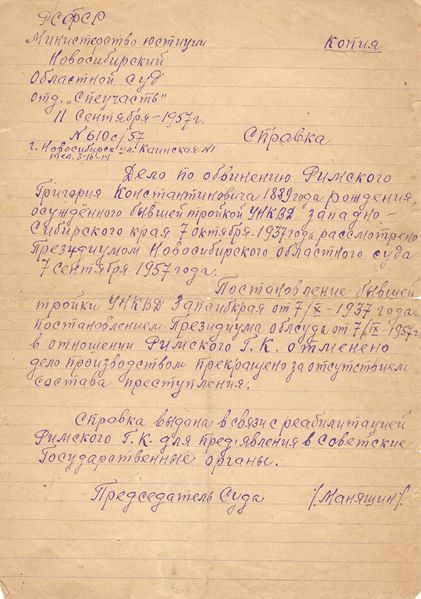 РСФСР
Министерство юстиции копия
Новосибирский
Областной суд
отд. „Спецчасть"
11 Сентября - 1957г.
№ 610с/57 Справка
г. Новосибирск ул. Каинская №1
тел. 3-16-
Дело по обвинению Римского
Григория Константиновича 1889 года рождения,
осуждённого бывшей тройкой УНКВД западно-
Сибирского края 7 октября 1937 года рассмотрено
Президиумом Новосибирского областного суда
7 сентября 1957 года.
Постановление бывшей
тройки УНКВД Запсибкрая от 7/X - 1937 года
постановлением Президиума облсуда от 7/IX - 1957г
в отношении Римского Г. К. отменено
дело производством прекращено за отсутствием
состава преступления.
Справка выдана в связи с реабилитацией
Римского Г. К для предъявления в Советские
Государственные органы.
Председатель Суда /Маняшин/.